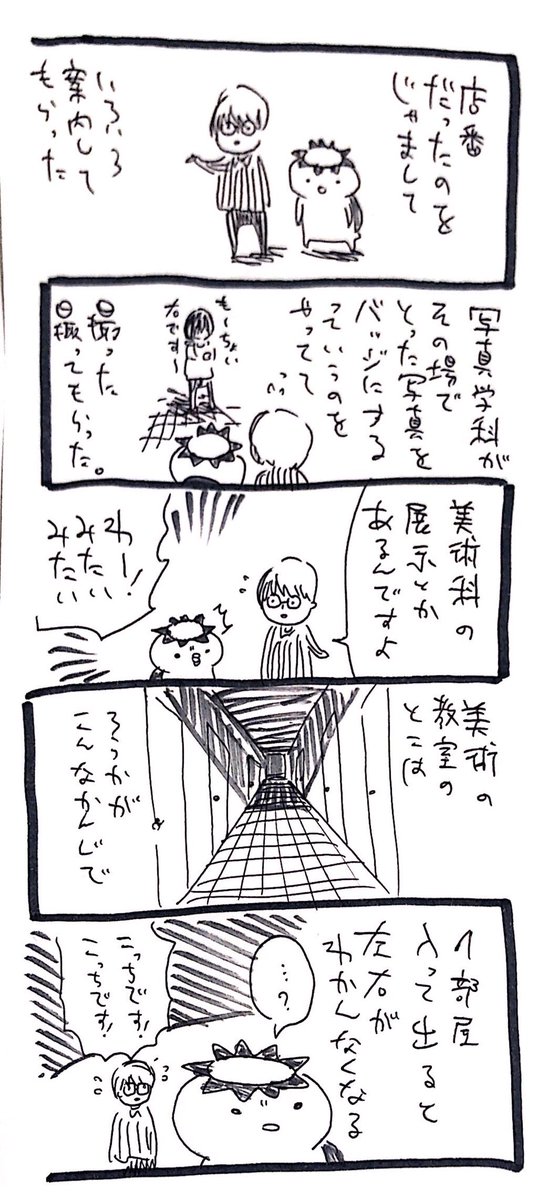 店番
だったのを
じゃまして
いろいろ
案内して
もらった
写真学科が
その場で
とった写真を
バッジにする
っていうのを
やってて
も〜ちょい
右です〜
撮った
撮ってもらった。
美術科の
展示とか
あるんですよ
わー!
みたい
みたい
美術の
教室の
とこは
ろうかが
こんなかんじで
1部屋
入って出ると
左右が
わかんなくなる
…?
こっちです!
こっちです!